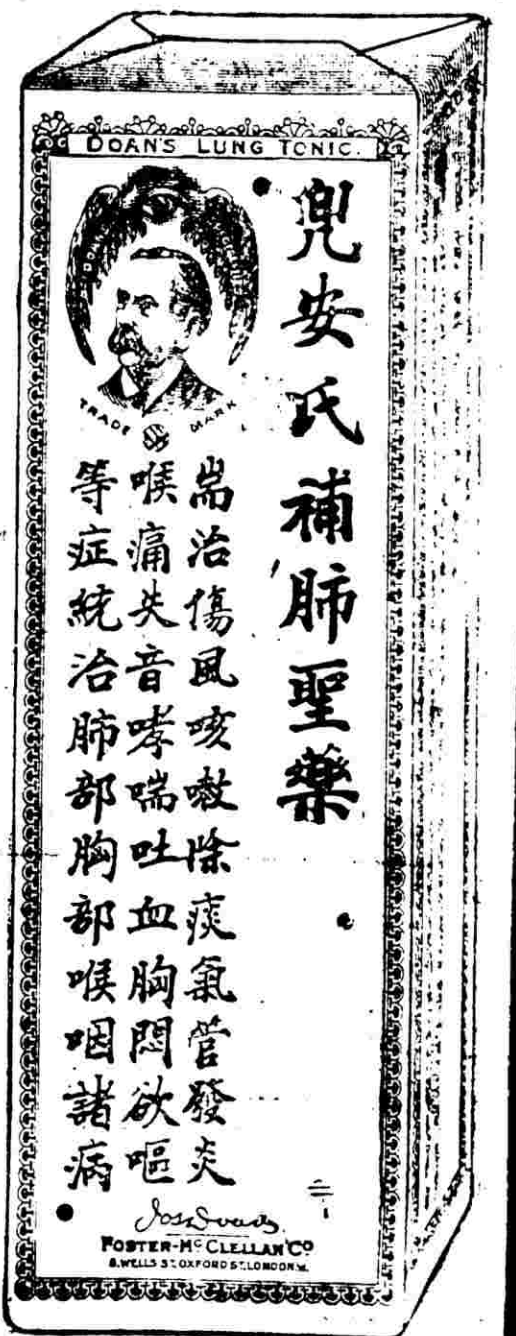 DOAN'S LUNG TONIC.
兜安氏補肺聖藥
TRADE MARK
耑治傷風咳嗽除痰氣管發炎
喉痛失音哮喘吐血胸悶欲嘔
等症統治肺部胸部喉咽諸病
FOSTER-McCLELLAN CO
8. WELLS ST. OXFORD ST. LONDON. W.